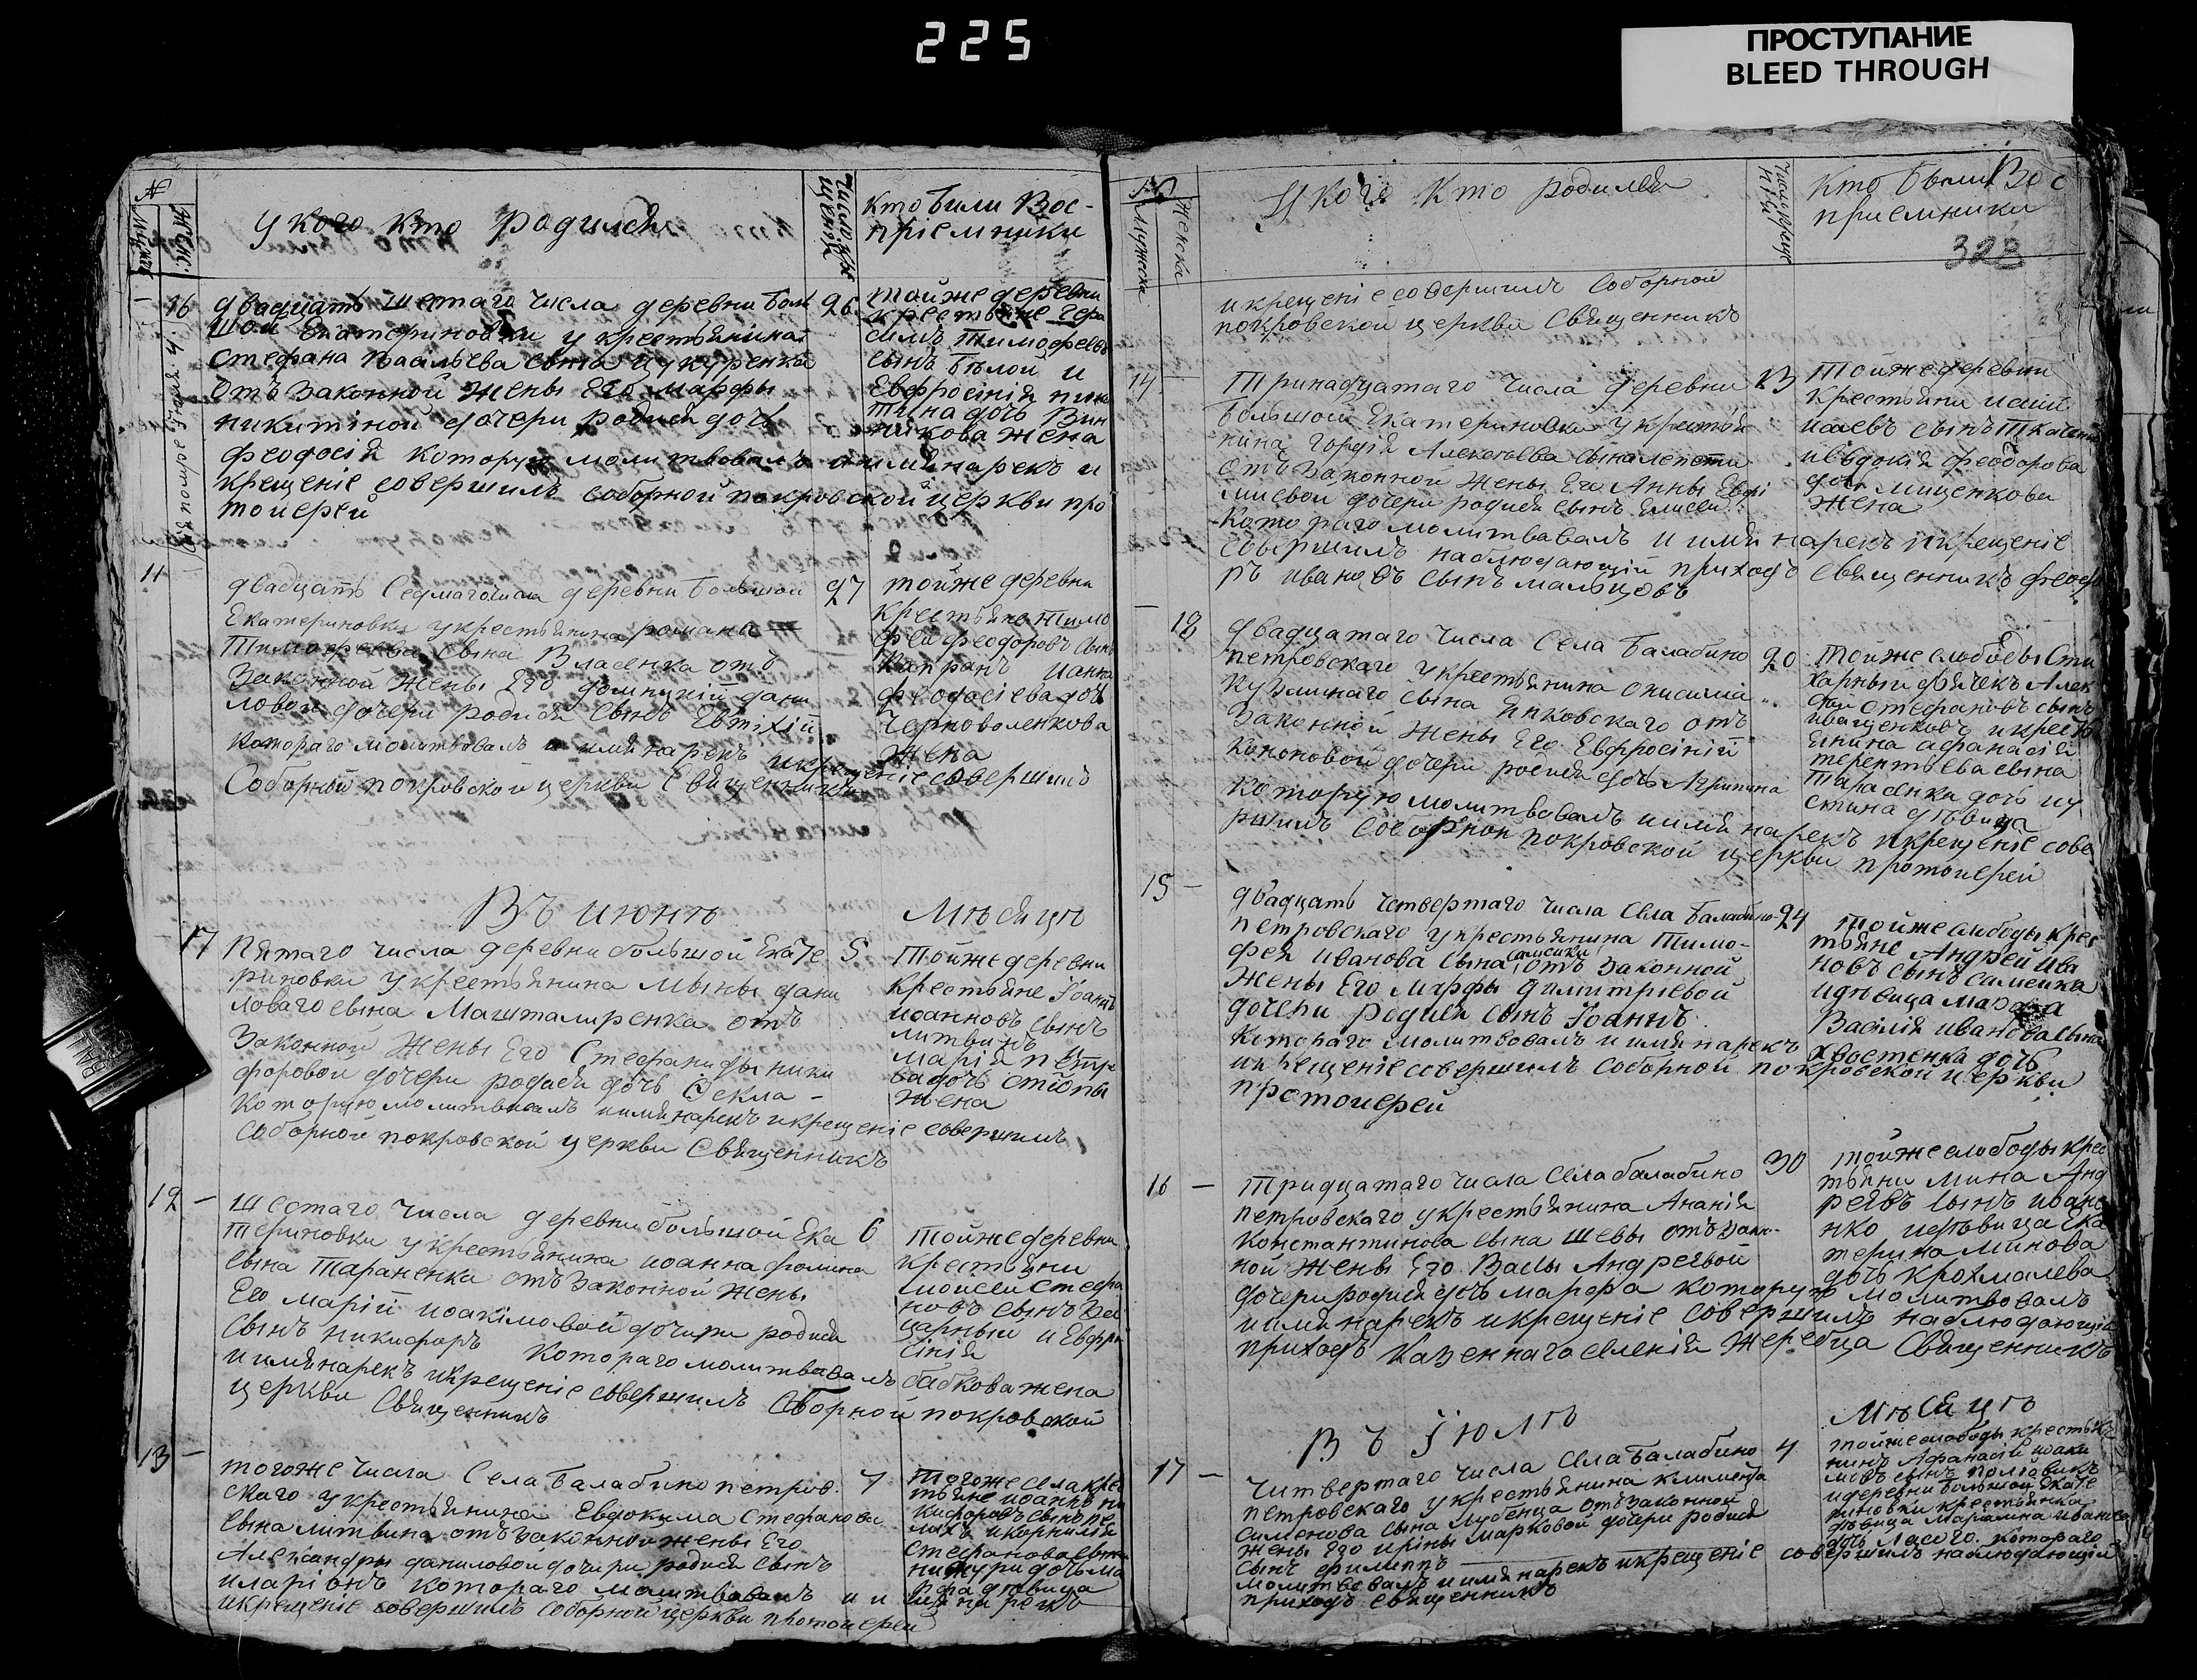 225
ПРОСТУПАНИЕ
BLEED THROUGH
№
У кого кто родился
Число кре
щенія
кто били Вос-
пріемники
16
двадцать шестаго числа деревни Боль
шой Екатериновки у крестьянина
Стефана Васильева сына Цукуренка
отъ законной жены Его марфы
никитіной дочери родися дочь
феодосія которую молитвовалъ и имя нарекъ и
крещеніе совершилъ соборной покровской церкви про
тоиерей
26
тойже деревни
крестьяне Гера
симъ Тимофеевъ
сынъ Бѣлой и
Евфросінія ники
тина дочь Вин
никова жена
11
двадцать Седмаго числа деревни Большой
Екатериновки у крестьянина романа
Тимофеева Сына Власенка отъ
Законной жены Его домникіи дани
ловой дочери родися Сынъ Евтихій
котораго молитвовалъ и имя нарекъ и крещеніе совершилъ
Соборной покровской церкви Священникъ
27
тойже деревни
крестьяне Тимо
фей феодоровъ Сынъ
и анна
феодосіева дочь
Черноволенкова
жена
Въ июнѣ
Мѣсяцѣ
17
Пятаго числа деревни большой Екате
риновки у крестьянина мыны дани
ловаго сына Машталиренка отъ
Законной Жены Его Стефаниды ники
форовой дочери родися дочь Фекла -
которую молитвовалъ и имя нарекъ и крещеніе совершилъ
соборной покровской церкви Священникъ
5
Тойже деревни
Крестьяне Іоаннъ
иоанновъ сынъ
литвинъ
марія петро
ва дочь
жена
12 -
Шестаго числа деревни большой Ека
териновки у крестьянина иоанна фомина
сына Тараненка отъ законной жены
Его маріи иоакімовой дочери родися
Сынъ никифоръ котораго молитвовалъ
и имя нарекъ и крещеніе совершилъ Сборной покровской
церкви Священникъ
6
тойже деревни
крестьяни
моисей Стефа
новъ сынъ
и Евфро
сінія
бабкова жена
13 -
тогоже числа Села Балабино петров.
скаго у крестьянина Евдокима Стефанова
сына литвина отъ законной жены Его
Александры даниловой дочери родися сынъ
иларіонъ котораго молитвовалъ и и
мя нарекъ
и крещеніе совершилъ соборной церкви протоиерей
7
Тогоже села крес
тьяне иоаннъ ни
кифоровъ сынъ
и корнилія
стефанова сына
дочь ма
рфа дѣвица
№
Мужеска
Женска
У кого кто родился
Число креще
нія
Кто были Вос
приемники
323
и крещеніе совершилъ Соборной
покровской церкви Священникъ
14 -
Тринадцатаго числа деревни
Большой Екатериновки у крестья
нина Гордія Алексѣева сына
отъ законной жены Его Анны Евфі
миевой дочери родися сынъ Елисей
котораго молитвовалъ и имя нарекъ и крещеніе
совершилъ наблюдающій приходъ Священникъ феодо
ръ ивановъ сынъ мальцовъ
13
Тойже деревни
крестьяни
сынъ Ткаченко
и Евдокія феодорова
дочь мищенкова
жена
- 18
двадцатаго числа Села Балабино
петровскаго у крестьянина онисима
Кузминаго сына отъ
законной жены Его Евфросініи
кононовой дочери родися дочь Агрипина
которую молитвовалъ и имя нарекъ и крещеніе сове
ршилъ соборной покровской церкви протоиерей
20
Тойже слободы
дьячекъ Алек
сѣй Стефановъ сынъ
иващенковъ и кресть
янина афанасія
терентьева сына
Тараенка дочь иу
стина дѣвица
15 -
двадцать четвертаго числа Села Балабино-
петровскаго у крестьянина Тимо-
фея иванова сына симейки отъ законной
жены Его марфы димитріевой
дочери родися сынъ Іоаннъ
котораго молитвовалъ и имя нарекъ
и крещеніе совершилъ соборной покровской церкви
протоиерей
24
тойже слободы крес
тьяне Андрей ива
новъ сынъ симейка
и дѣвица марфа
Василія иванова сына
хвостенка дочь
16 -
тридцатаго числа Села балабино
петровскаго у крестьянина Ананія
Константинова сына шевы отъ закон-
ной жены Его Васы Андреевой
дочери родися дочь марфа которую молитвовалъ
и имя нарекъ и крещеніе совершилъ наблюдающій
приходъ казеннаго селенія Жеребца Священникъ
30
тойже слободы крес
тьяни мина Анд
реевъ сынъ иване
нко и дѣвица Ека
терина минова
дочь крохмалева
Въ Іюлѣ
Мѣсяцѣ
17 -
Читвертаго числа Села Балабино
петровскаго у крестьянина климента
Сименова сына лубенца отъ законной
жены Его ирины марковой дочери родися
сынъ филиппъ
молитвовалъ и имя нарекъ и крещеніе совершилъ наблюдающій
приходъ священникъ
4
тойже слободы кресть
янинъ Афанасій иоаки
мовъ сынъ полтавикъ
и деревни Большой Екате
риновки крестьянка
дѣвица Маріамна иванова
дочь котораго